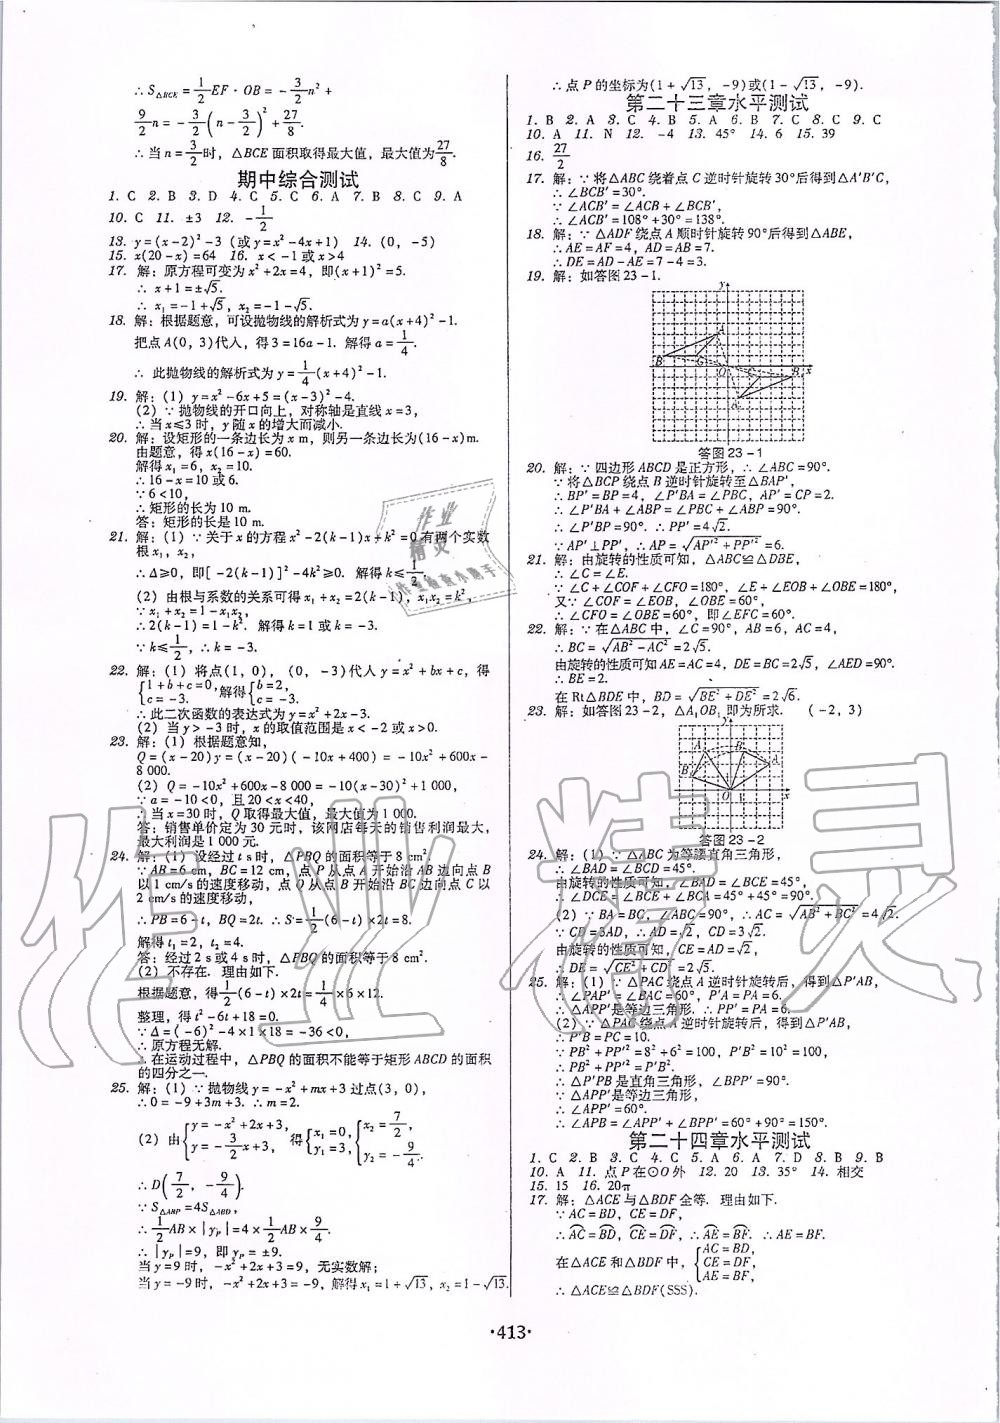 ∴S△BCE=1/2 EF·OB=-3/2 n²+
9/2 n=-3/2(n-3/2)²+27/8.
∴当n=3/2时，△BCE面积取得最大值，最大值为27/8.
期中综合测试
1. C 2. B 3. D 4. C 5. C 6. A 7. B 8. C 9. A
10. C 11. ±3 12. -1/2
13. y=(x-2)²-3（或y=x²-4x+1） 14.（0，-5）
15. x(20-x)=64 16. x<-1或x>4
17. 解：原方程可变为x²+2x=4，即(x+1)²=5.
∴ x+1=±√5.
∴ x₁=-1+√5，x₂=-1-√5.
18. 解：根据题意，可设抛物线的解析式为y=a(x+4)²-1.
把点A(0，3)代入，得3=16a-1. 解得a=1/4.
∴ 此抛物线的解析式为y=1/4(x+4)²-1.
19. 解：(1) y=x²-6x+5=(x-3)²-4.
(2) ∵抛物线的开口向上，对称轴是直线x=3，
∴当x≤3时，y随x的增大而减小.
20. 解：设矩形的一条边长为x m，则另一条边长为(16-x)m.
由题意，得x(16-x)=60.
解得x₁=6，x₂=10.
∴16-x=10或6.
∵6<10，
∴矩形的长为10 m.
答：矩形的长是10 m.
21. 解：(1) ∵关于x的方程x²-2(k-1)x+k²=0有两个实数
根x₁，x₂，
∴Δ≥0，即[-2(k-1)]²-4k²≥0. 解得k≤1/2.
(2) 由根与系数的关系可得x₁+x₂=2(k-1)，x₁x₂=k²，
∵x₁+x₂=1-x₁x₂，
∴2(k-1)=1-k². 解得k=1或k=-3.
∵k≤1/2，∴k=-3.
22. 解：(1) 将点(1，0)，(0，-3)代入y=x²+bx+c，得
{1+b+c=0, c=-3. 解得{b=2, c=-3.
∴此二次函数的表达式为y=x²+2x-3.
(2) 当y>-3时，x的取值范围是x<-2或x>0.
23. 解：(1) 根据题意知，
Q=(x-20)y=(x-20)(-10x+400)=-10x²+600x-
8 000.
(2) Q=-10x²+600x-8 000=-10(x-30)²+1 000，
∵a=-10<0，且20<x<40，
∴当x=30时，Q取得最大值，最大值为1 000.
答：销售单价定为30元时，该网店每天的销售利润最大，
最大利润是1 000元.
24. 解：(1) 设经过t s时，△PBQ的面积等于8 cm².
∵AB=6 cm，BC=12 cm，点P从点A开始沿AB边向点B
以1 cm/s的速度移动，点Q从点B开始沿BC边向点C以
2 cm/s的速度移动，
∴PB=6-t，BQ=2t. ∴S=1/2(6-t)×2t=8.
解得t₁=2，t₂=4.
答：经过2 s或4 s时，△PBQ的面积等于8 cm².
(2) 不存在. 理由如下.
根据题意，得1/2(6-t)×2t=1/4×6×12.
整理，得t²-6t+18=0.
∵Δ=(-6)²-4×1×18=-36<0，
∴原方程无解.
∴在运动过程中，△PBQ的面积不能等于矩形ABCD的面积
的四分之一.
25. 解：(1) ∵抛物线y=-x²+mx+3过点(3，0)，
∴0=-9+3m+3. ∴m=2.
(2) 由{y=-x²+2x+3, y=-3/2 x+3, 得{x₁=0, y₁=3, {x₂=7/2, y₂=-9/4.
∴D(7/2，-9/4).
∵S△ABP=4S△ABD，
∴1/2 AB×|yP|=4×1/2 AB×9/4.
∴|yP|=9，即yP=±9.
当y=9时，-x²+2x+3=9，无实数解；
当y=-9时，-x²+2x+3=-9，解得x₁=1+√13，x₂=1-√13.
∴点P的坐标为(1+√13，-9)或(1-√13，-9).
第二十三章水平测试
1. B 2. A 3. C 4. B 5. A 6. B 7. C 8. C 9. C
10. A 11. N 12. -4 13. 45° 14. 6 15. 39
16. 27/2
17. 解：∵将△ABC绕着点C逆时针旋转30°后得到△A'B'C，
∴∠BCB'=30°.
∵∠ACB'=∠ACB+∠BCB'，
∴∠ACB'=108°+30°=138°.
18. 解：∵△ADF绕点A顺时针旋转90°后得到△ABE，
∴AE=AF=4，AD=AB=7.
∴DE=AD-AE=7-4=3.
19. 解：如答图23-1.
答图23-1
20. 解：∵四边形ABCD是正方形，∴∠ABC=90°.
∵将△BCP绕点B逆时针旋转至△BAP'，
∴BP'=BP=4，∠P'BA=∠PBC，AP'=CP=2.
∴∠P'BA+∠ABP=∠PBC+∠ABP=90°.
∴∠P'BP=90°. ∴PP'=4√2.
∵AP'⊥PP'，∴AP=√(AP'²+PP'²)=6.
21. 解：由旋转的性质可知，△ABC≌△DBE，
∴∠C=∠E.
∵∠C+∠COF+∠CFO=180°，∠E+∠EOB+∠OBE=180°，
又∵∠COF=∠EOB，∠OBE=60°，
∴∠CFO=∠OBE=60°，即∠EFC=60°.
22. 解：∵在△ABC中，∠C=90°，AB=6，AC=4，
∴BC=√(AB²-AC²)=2√5.
由旋转的性质可知AE=AC=4，DE=BC=2√5，∠AED=90°.
∴BE=2.
在Rt△BDE中，BD=√(BE²+DE²)=2√6.
23. 解：如答图23-2，△A₁OB₁即为所求. （-2，3）
答图23-2
24. 解：(1) ∵△ABC为等腰直角三角形，
∴∠BAD=∠BCD=45°.
由旋转的性质可知，∠BAD=∠BCE=45°，
∴∠DCE=∠BCE+∠BCA=45°+45°=90°.
(2) ∵BA=BC，∠ABC=90°，∴AC=√(AB²+BC²)=4√2.
∵CD=3AD，∴AD=√2，CD=3√2.
由旋转的性质可知，CE=AD=√2，
∴DE=√(CE²+CD²)=2√5.
25. 解：(1) ∵△PAC绕点A逆时针旋转后，得到△P'AB，
∴∠PAP'=∠BAC=60°，P'A=PA=6.
∴△APP'是等边三角形. ∴PP'=PA=6.
(2) ∵△PAC绕点A逆时针旋转后，得到△P'AB，
∴P'B=PC=10.
∵PB²+PP'²=8²+6²=100，P'B²=10²=100，
∴PB²+PP'²=P'B².
∴△P'PB是直角三角形，∠BPP'=90°.
∵△APP'是等边三角形，
∴∠APP'=60°.
∴∠APB=∠APP'+∠BPP'=60°+90°=150°.
第二十四章水平测试
1. C 2. B 3. C 4. C 5. A 6. A 7. D 8. B 9. B
10. A 11. 点P在⊙O外 12. 20 13. 35° 14. 相交
15. 15 16. 20π
17. 解：△ACE与△BDF全等. 理由如下.
∵AC=BD，CE=DF，
∴AC=BD，CE=DF，∴AE=BF. ∴AE=BF.
在△ACE和△BDF中，{AC=BD, CE=DF, AE=BF,
∴△ACE≌△BDF(SSS).
·413·
作业精灵